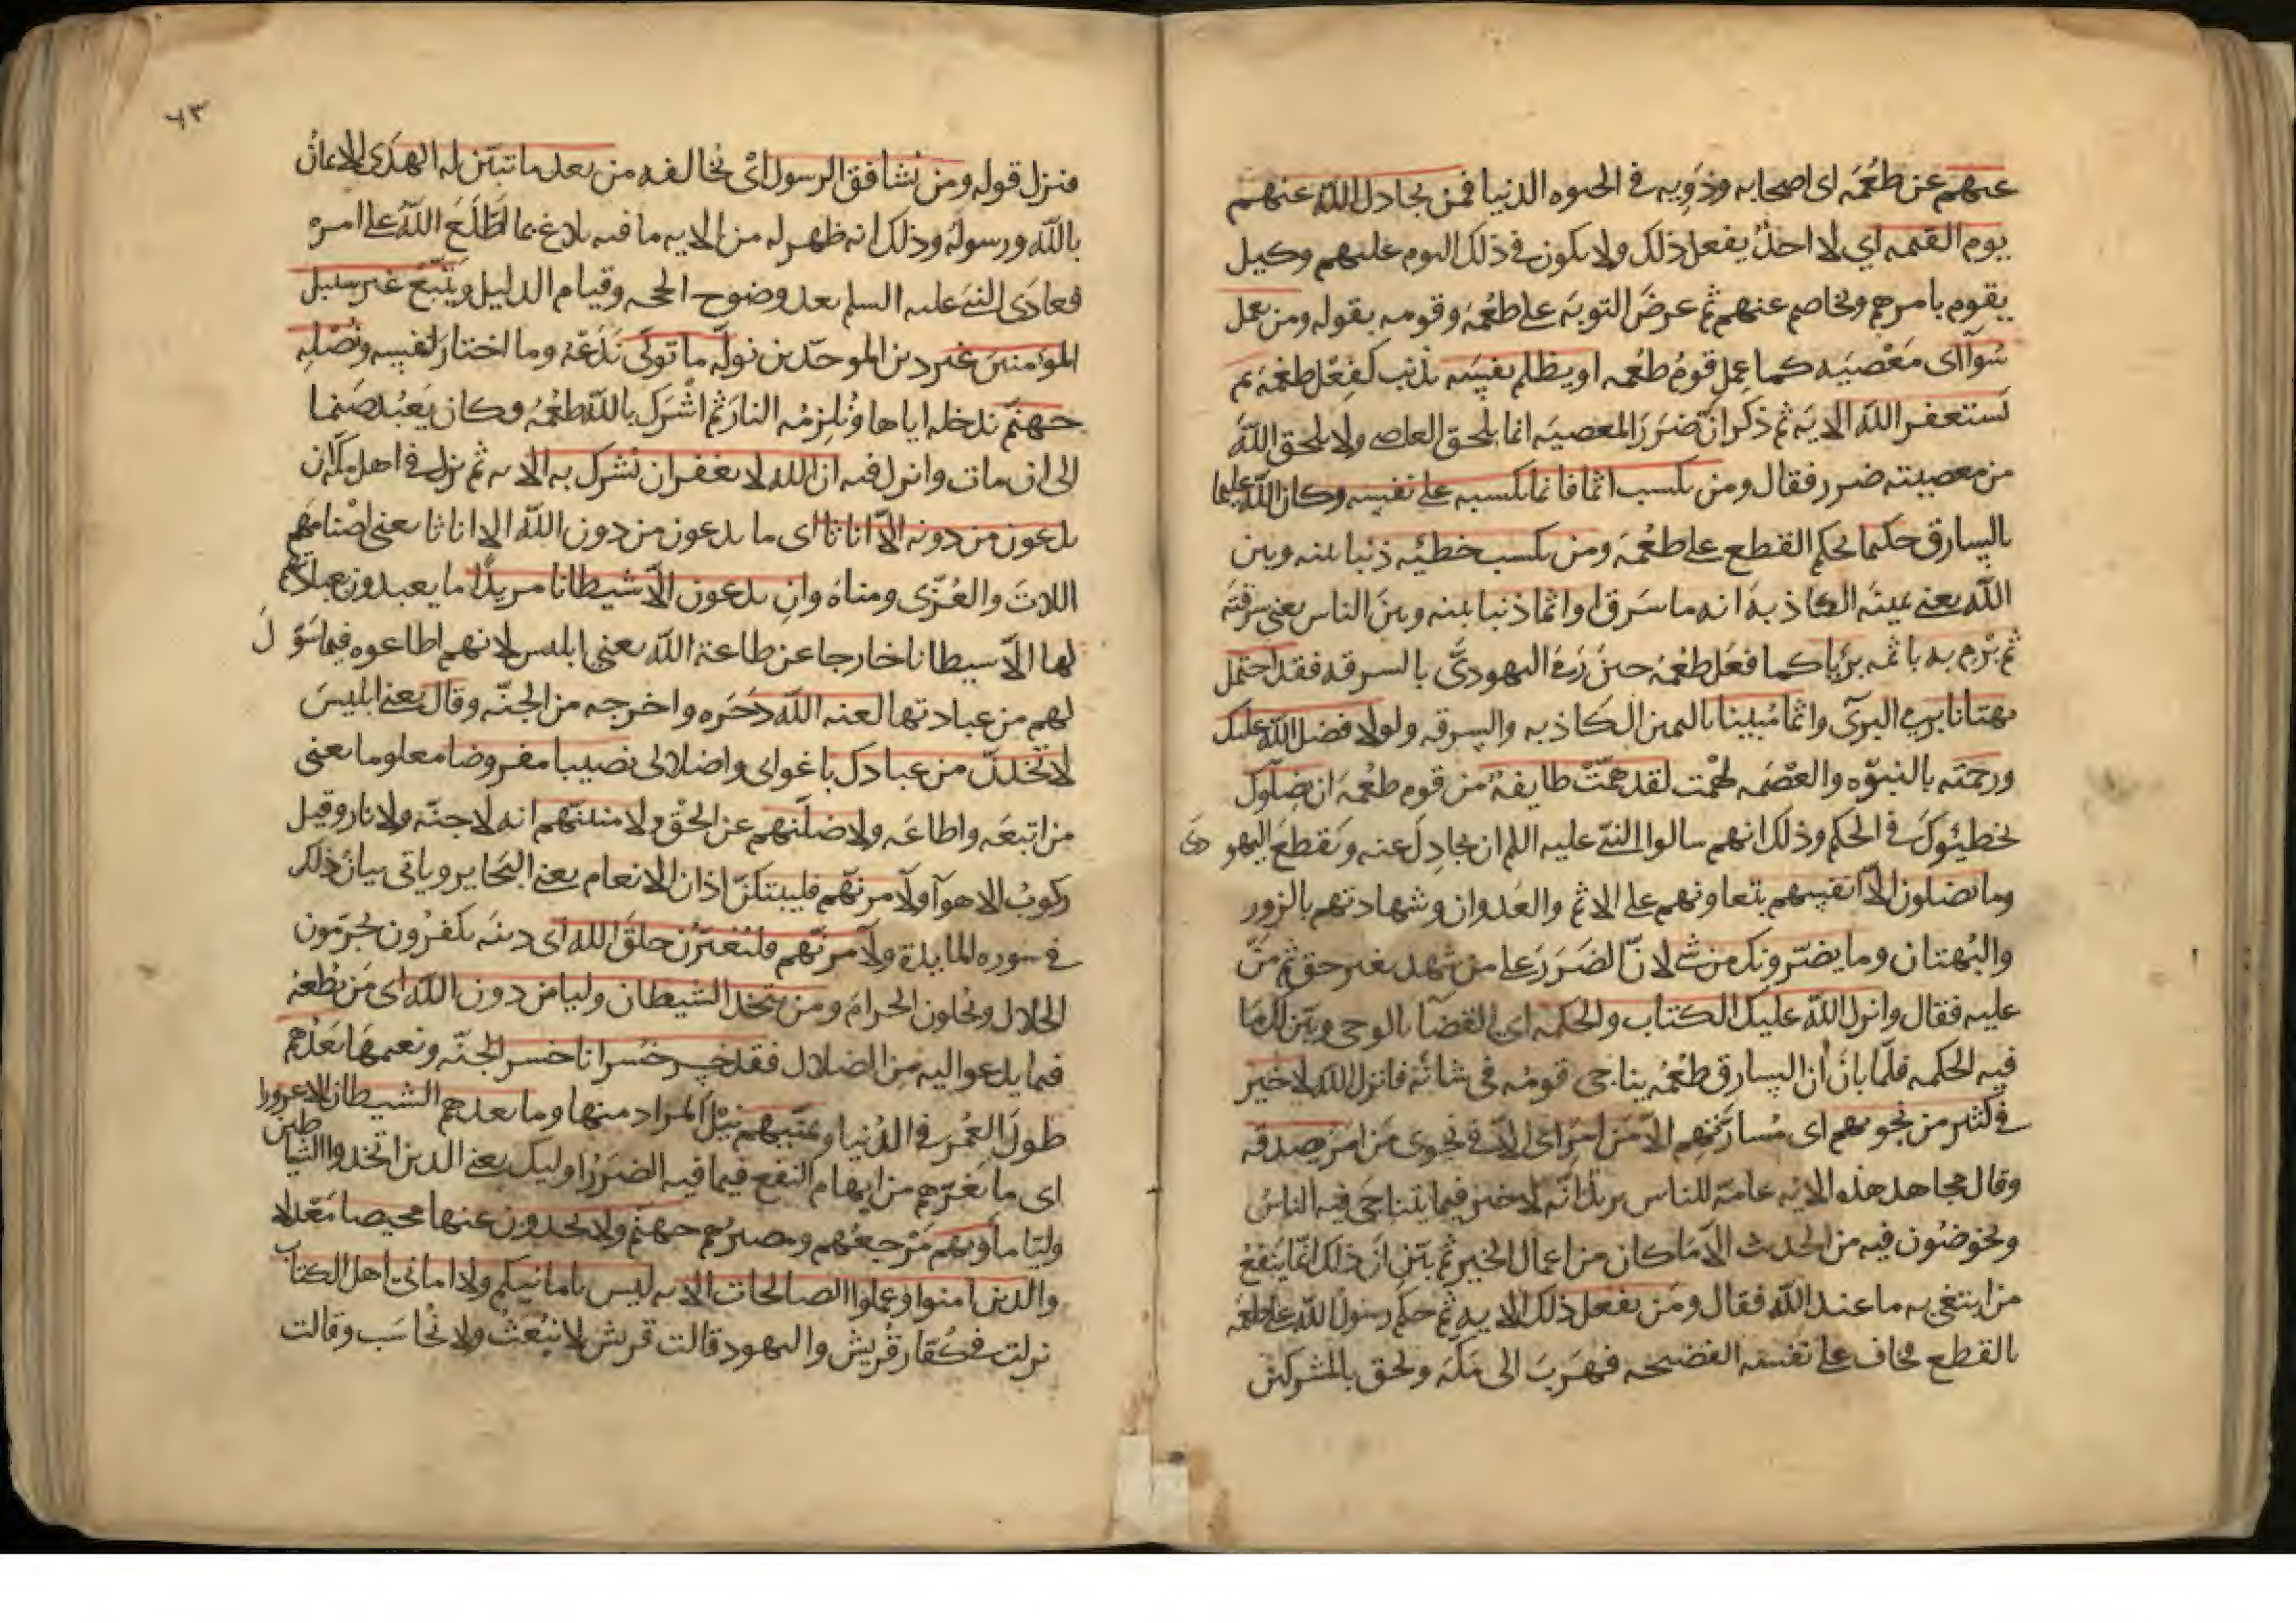 عنهم عن طعمه اى اصحابه وذويه في الحيوه الدنيا فمن يجادل الله عنهم
يوم القيمه اي لا احد يفعل ذلك ولا يكون في ذلك اليوم عليهم وكيل
يقوم بامرهم ويخاصم عنهم ثم عرض التوبة على طعمة وقومه بقوله ومن يعمل
سوآ اى معصيه كما عمل قوم طعمه او يظلم نفسه بذنب كفعل طعمة ثم
يستغفر الله الايه ثم ذكر ان ضرر المعصيه انما يلحق العاصي ولا يلحق الله
من معصيته ضرر فقال ومن يكسب اثما فانما يكسبه على نفسه وكان الله عليما
بالسارق حكيما بحكم القطع على طعمة ومن يكسب خطيئه ذنبا بينه وبين
الله يعني يمينه الكاذبة انه ما سرق او اثما ذنبا بينه وبين الناس يعني سرقته
ثم يرم به باثمه بريا كما فعل طعمة حين رمى اليهودى بالسرقه فقد احتمل
بهتانا برمي البرى واثما مبينا باليمين الكاذبه والسرقه ولولا فضل الله عليك
ورحمته بالنبوه والعصمه لهمت لقد همت طايفة من قوم طعمة ان يضلوك
يخطيوك في الحكم وذلك انهم سالوا النبي عليه السلم ان يجادل عنه ويقطع اليهودى
وما يضلون الا انفسهم بتعاونهم على الاثم والعدوان وشهادتهم بالزور
والبهتان وما يضرونك من شي لان الضرر على من شهد بغير حق ثم من
عليه فقال وانزل الله عليك الكتاب والحكمه اي القضا بالوحي وبين لك ما
فيه الحكمه فلما بان ان السارق طعمة يناجي قومه في شانه فانزل الله لا خير
في كثير من نجويهم اى مسارتهم الا من امر اى الا في نجوى من امر بصدقه
وقال مجاهد هذه الايه عامة للناس يريد انه لا خير فيما يتناجى فيه الناس
ويخوضون فيه من الحديث الا ما كان من اعمال الخير ثم بين ان ذلك انما ينفع
من ابتغى به ما عند الله فقال ومن يفعل ذلك الايه ثم حكم رسول الله على طعمة
بالقطع فخاف على نفسه الفضيحه فهرب الى مكة ولحق بالمشركين
٦٣
فنزل قوله ومن يشاقق الرسول اى يخالفه من بعد ما تبين له الهدى الايمان
بالله ورسوله وذلك انه ظهر له من الايه ما فيه بلاغ بما اطلع الله على امره
فعادى النبي عليه السلم بعد وضوح الحجه وقيام الدليل ويتبع غير سبيل
المومنين غير دين الموحدين نوله ما تولى ندعه وما اختار لنفسه ونصله
جهنم ندخله اياها ونلزمه النار ثم اشرك بالله طعمة وكان يعبد صنما
الى ان مات وانزل فيه ان الله لا يغفر ان يشرك به الايه ثم نزل في اهل مكة ان
يدعون من دونه الا اناثا اى ما يدعون من دون الله الا اناثا يعني اصنامهم
اللات والعزى ومناة وان يدعون الا شيطانا مريدا ما يعبدون بعبادتهم
لها الا شيطانا خارجا عن طاعة الله يعني ابليس لانهم اطاعوه فيما سول
لهم من عبادتها لعنه الله دحره واخرجه من الجنه وقال يعني ابليس
لاتخذن من عبادك باغواى واضلالى نصيبا مفروضا معلوما يعني
من اتبعه واطاعه ولاضلنهم عن الحق ولامنينهم انه لا جنة ولا نار وقيل
ركوب الاهوآ ولآمرنهم فليبتكن اذان الانعام يعني البحاير وياتي بيان ذلك
في سوره المايدة ولآمرنهم فليغيرن خلق الله اى دينه يكفرون يحرمون
الحلال ويحلون الحرام ومن يتخذ الشيطان وليا من دون الله اى من يطعه
فيما يدعو اليه من الضلال فقد خسر خسرانا خسر الجنه ونعيمها يعدهم
طول العمر في الدنيا ويمنيهم نيل المراد منها وما يعدهم الشيطان الا غرورا
اى ما يغرهم من ايهام النفع فيما فيه الضرر اوليك يعني الذين اتخذوا الشياطين
وليا ماويهم مرجعهم ومصيرهم جهنم ولا يجدون عنها محيصا معدلا
والذين امنوا وعملوا الصالحات الايه ليس بامانيكم ولا اماني اهل الكتاب
نزلت في كفار قريش واليهود قالت قريش لا نبعث ولا نحاسب وقالت